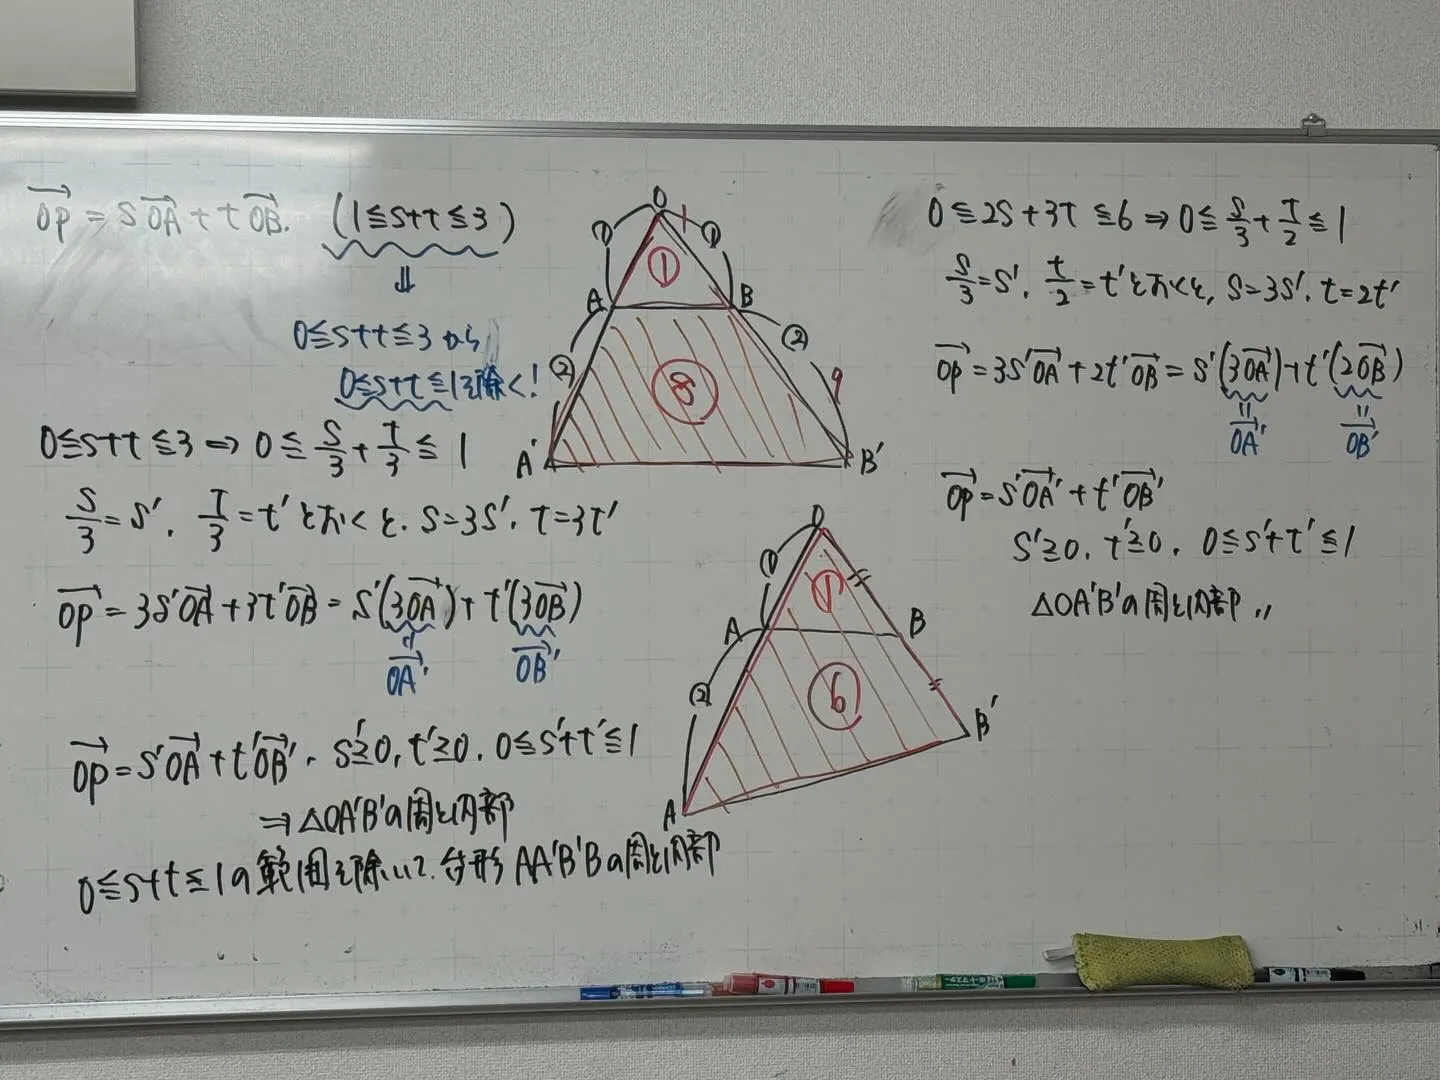 OP = sOA + tOB. (1≦s+t≦3)
⇓
0≦s+t≦3から
0≦s+t≦1を除く!
0≦s+t≦3 ⇒ 0≦s/3+t/3≦1
s/3=s', t/3=t'とおくと, s=3s', t=3t'
OP = 3s'OA+3t'OB = s'(3OA)+t'(3OB)
= OA' OB'
OP = s'OA'+t'OB', s'≧0, t'≧0, 0≦s'+t'≦1
⇒△OA'B'の周と内部
0≦s+t≦1の範囲を除いて、台形AA'B'Bの周と内部
O
① 1 ①
①
A B
② ②
⑧ 9
A' B'
O
①
①
A B
②
⑥
B'
A'
0≦2s+3t≦6⇒0≦s/3+t/2≦1
s/3=s', t/2=t'とおくと, s=3s', t=2t'
OP=3s'OA+2t'OB=s'(3OA)+t'(2OB)
= =
OA' OB'
OP=s'OA'+t'OB'
s'≧0, t'≧0, 0≦s'+t'≦1
△OA'B'の周と内部 //